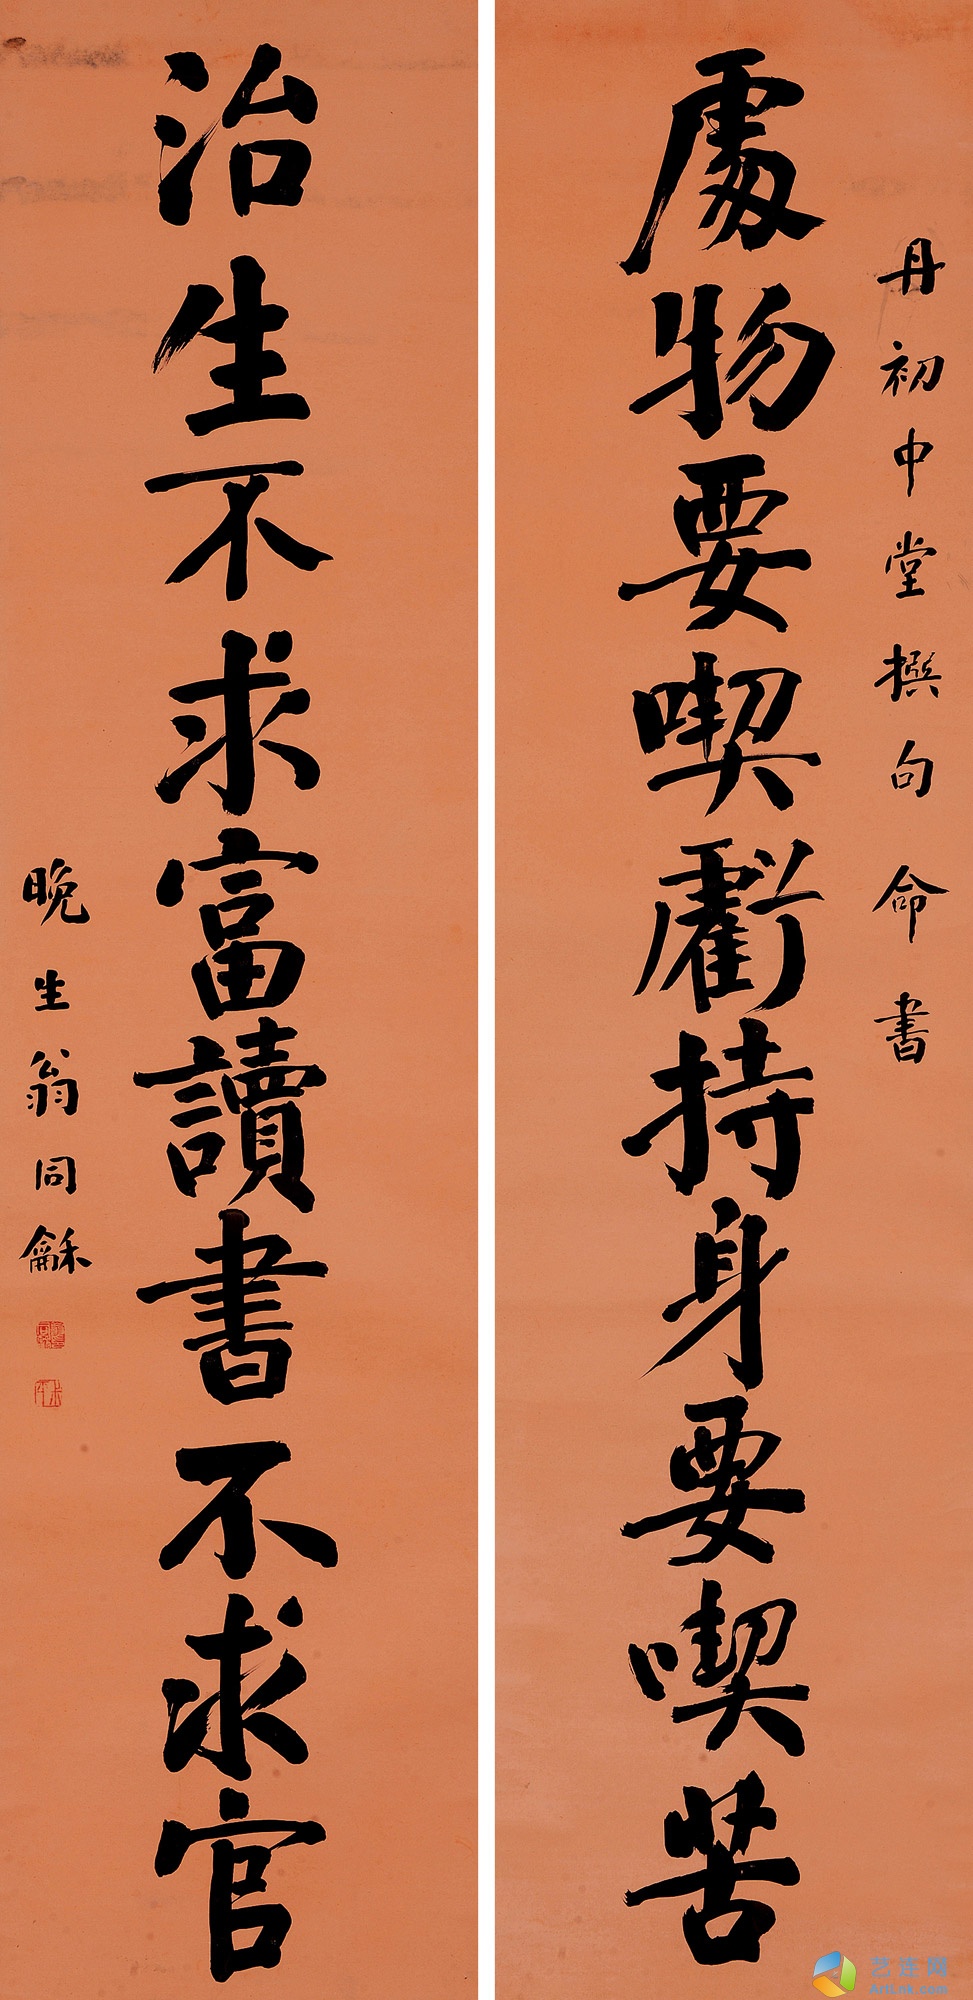 丹初中堂撰句 命書
處物要喫虧持身要喫苦
治生不求富讀書不求官
晚生翁同龢
艺连网
ArtLnk.com